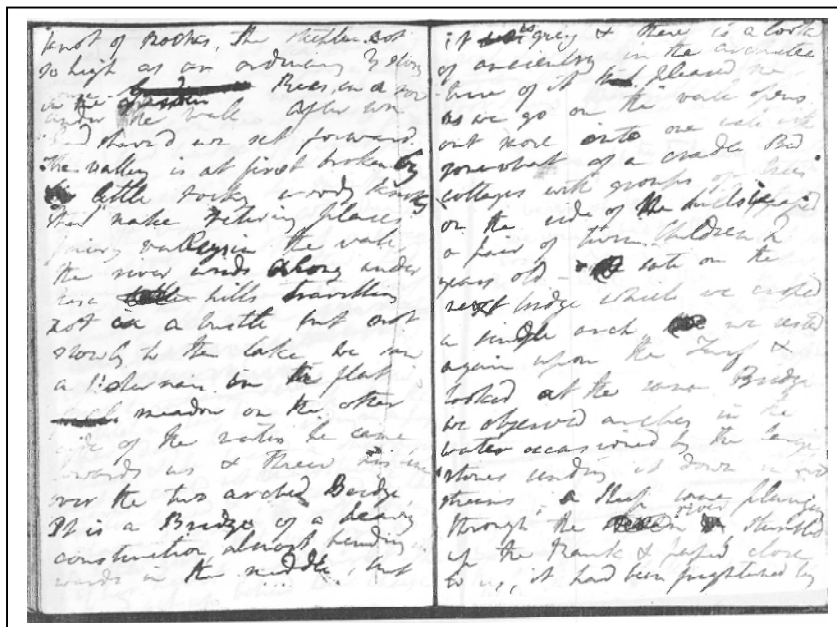 knot of rocks, the steeple not
so high as an ordinary 3 story
in the Trees, in a row
under the wall. After we
had shared we set forward.
The valley is at first broken by
little rocky woody knolls
that make retiring places
fairy valleys in the vale,
the river winds along under
these hills travelling
not in a bustle but not
slowly to the lake. We saw
a fisherman in the flat
meadow on the other
side of the water he came
towards us & threw his line
over the two arched Bridge.
It is a Bridge of a heavy
construction, almost bending
in the middle, but
it is grey & there is a look
of ancientry in the architec
ture of it that pleased me.
As we go on the vale opens
out more into one vale with
somewhat of a cradle Bed.
cottages with groups of trees
on the side of the hills. we passed
a pair of twin Children 2
years old — & sate on the
next bridge which we crossed
a single arch, we rested
again upon the Turf &
looked at the same Bridge
we observed arches in the
water occasioned by the large
stones sending it down in two
streams, a sheep came plunging
through the river, stumbled
up the Bank & passed close
to us, it had been frightened by